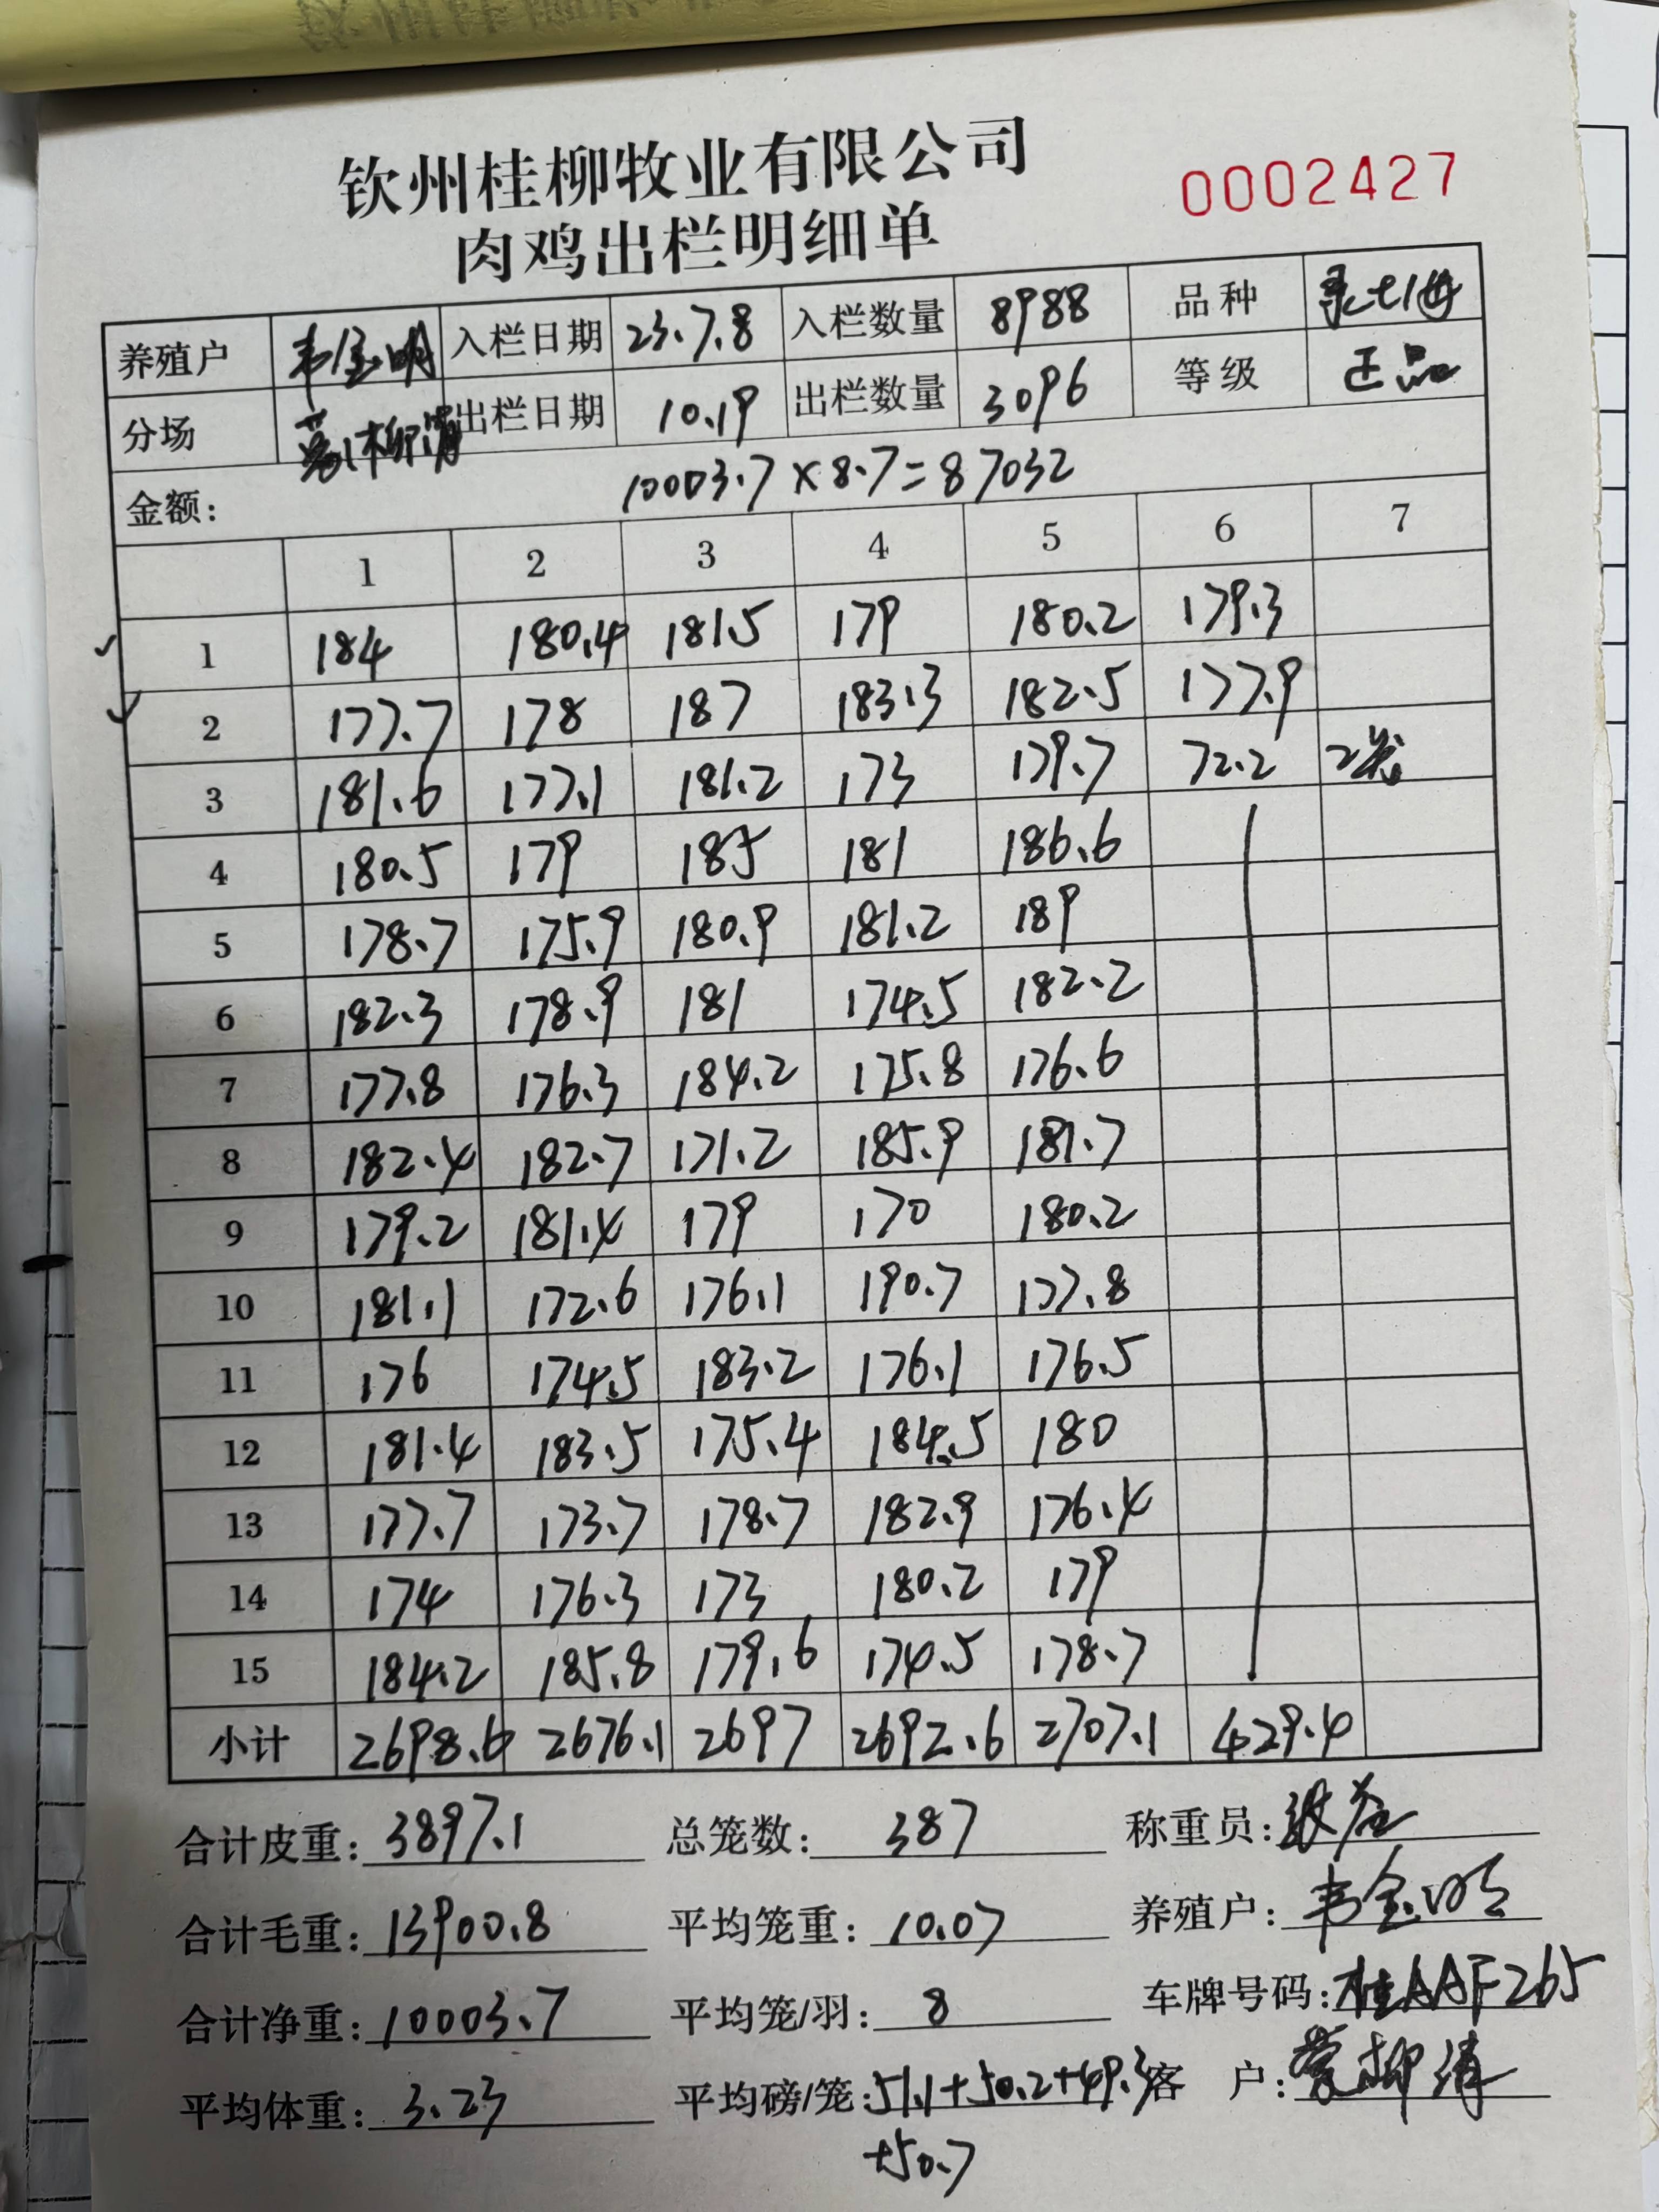 钦州桂柳牧业有限公司
0002427
肉鸡出栏明细单
养殖户 韦金明 入栏日期 23.7.8 入栏数量 8988 品种
分场 柳清 出栏日期 10.19 出栏数量 3096 等级 正品
金额: 10003.7×8.7=87032
1 2 3 4 5 6 7
1 184 180.4 181.5 179 180.2 179.3
2 177.7 178 187 183.3 182.5 177.9
3 181.6 177.1 181.2 173 179.7 72.2 2笼
4 180.5 179 185 181 186.6
5 178.7 175.9 180.9 181.2 189
6 182.3 178.9 181 174.5 182.2
7 177.8 176.3 184.2 175.8 176.6
8 182.4 182.7 171.2 185.9 181.7
9 179.2 181.4 179 170 180.2
10 181.1 172.6 176.1 190.7 177.8
11 176 174.5 183.2 176.1 176.5
12 181.4 183.5 175.4 184.5 180
13 177.7 173.7 178.7 182.9 176.4
14 174 176.3 173 180.2 179
15 184.2 185.8 179.6 174.5 178.7
小计 2698.6 2676.1 2697 2692.6 2707.1 429.4
合计皮重: 3897.1 总笼数: 387 称重员:
合计毛重: 13900.8 平均笼重: 10.07 养殖户: 韦金明
合计净重: 10003.7 平均笼/羽: 8 车牌号码: 桂AAF265
平均体重: 3.23 平均磅/笼: 51.1+50.2+49.3 客 户: 柳清
+50.7